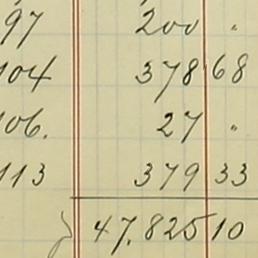 97 200 "
104 378 68
106. 27 "
113 379 33
47.825 10